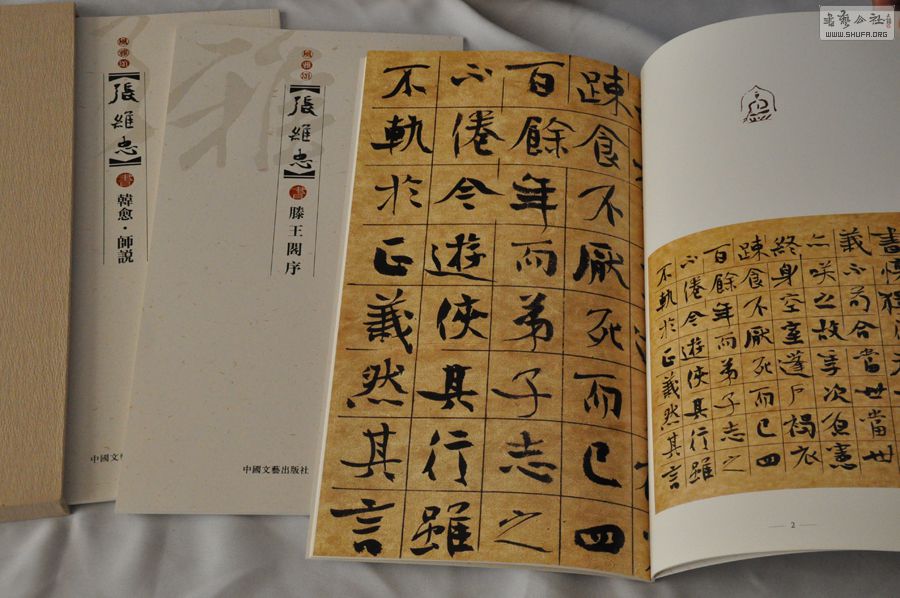 風雅頌
【張維忠】
書
韓愈·師說
中國文
風雅頌
【張維忠】
書
滕王閣序
中國文藝出版社
疎食不厭死而已四
百餘年而弟子志之
不倦今遊俠其行雖
不軌於正義然其言
書懷獨
義不苟合當世當世
亦笑之故季次原憲
終身空室蓬戶褐衣
疎食不厭死而已四
百餘年而弟子志之
不倦今遊俠其行雖
不軌於正義然其言
2
書藝公社
WWW.SHUFA.ORG